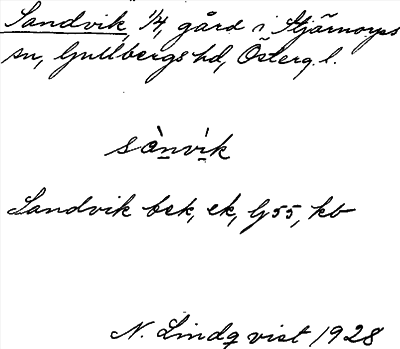 Sandvik 1/4, gård i Stjärnorps
sn, Gullbergs hd, Österg. l.
sànvìk
Sandvik bek, ek, G 55, kb
N. Lindqvist 1928